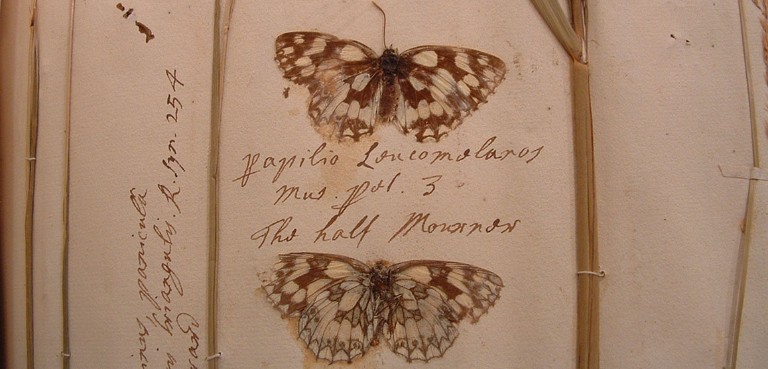 Papilio Leucomelanos
Mus. pet. 3
The half Mourner
panicula
triangulis. R. syn. 254